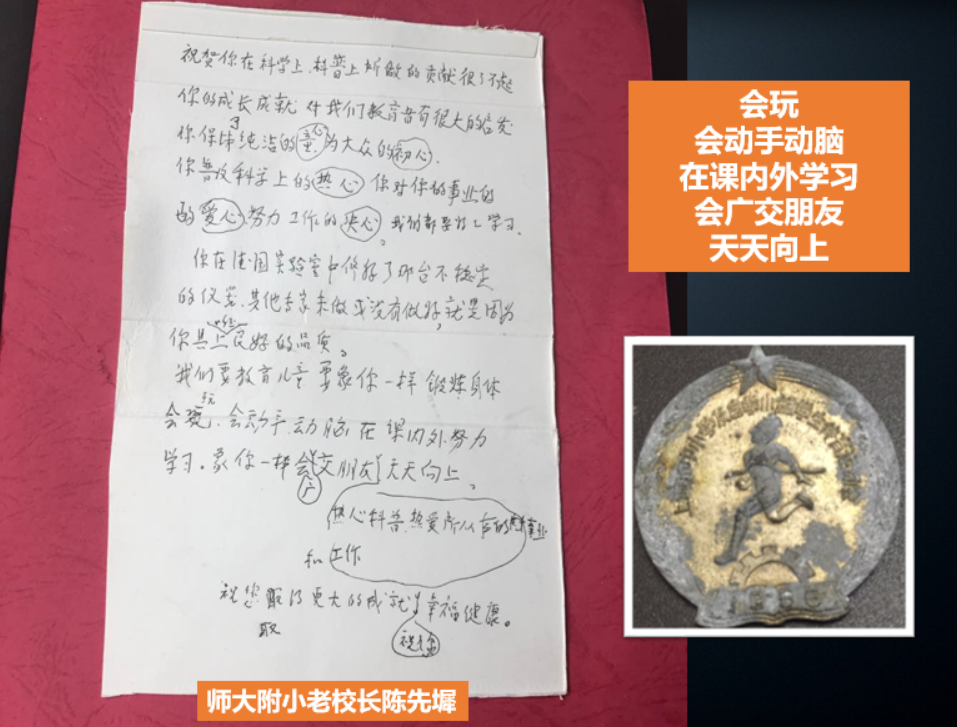 祝贺你在科学上、科普上所做的贡献很了不起
你的成长成就 对我们教育者有很大的启发
你保持了纯洁的童心 为大众的初心、
你普及科学上的热心 你对你的事业的
的爱心 努力工作的决心 我们都要好好学习、
你在法国实验室中修好了那台不稳定
的仪器、其他专家未做或没有做好，就是因为
你具上良好的品质。
我们要教育儿童 要象你一样 锻炼身体
会玩、会动手、动脑 在课内外努力
学习。象你一样会广交朋友 天天向上、
热心科普、热爱所从事的事业
和工作
祝您取得更大的成就！幸福健康。
取
会玩
会动手动脑
在课内外学习
会广交朋友
天天向上
师大附小老校长陈先墀